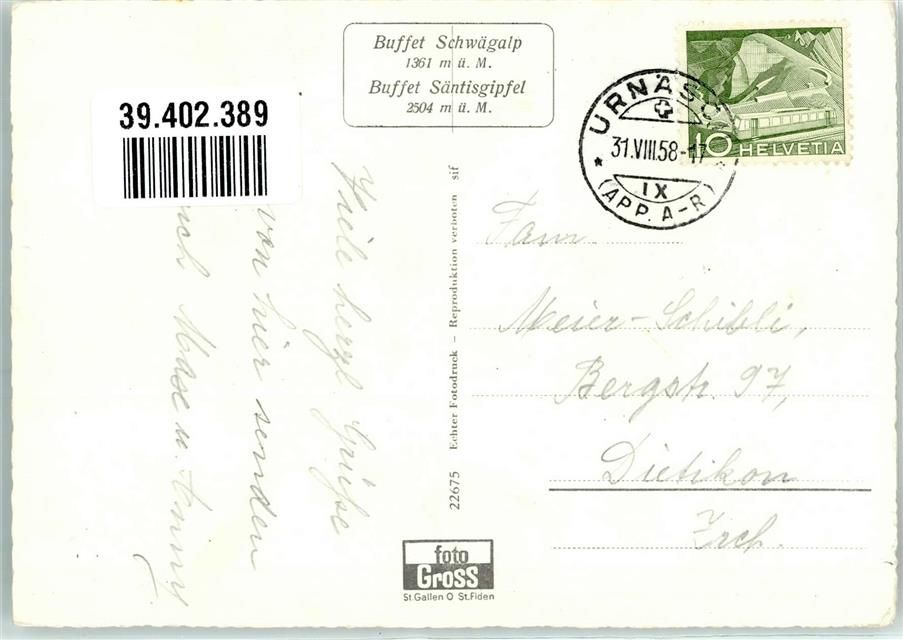 Buffet Schwägalp
1361 m ü. M.
Buffet Säntisgipfel
2504 m ü. M.
39.402.389
URNÄSCH
31.VIII.58-17
IX
(APP. A-R)
10 HELVETIA
Viele herzl. Grüße
von hier senden
euch Mase u. Anny
22675 Echter Fotodruck – Reproduktion verboten sif
Fam.
Meier-Schibli,
Bergstr. 97,
Dietikon
Zrch.
foto
Gross
St.Gallen O St.Fiden